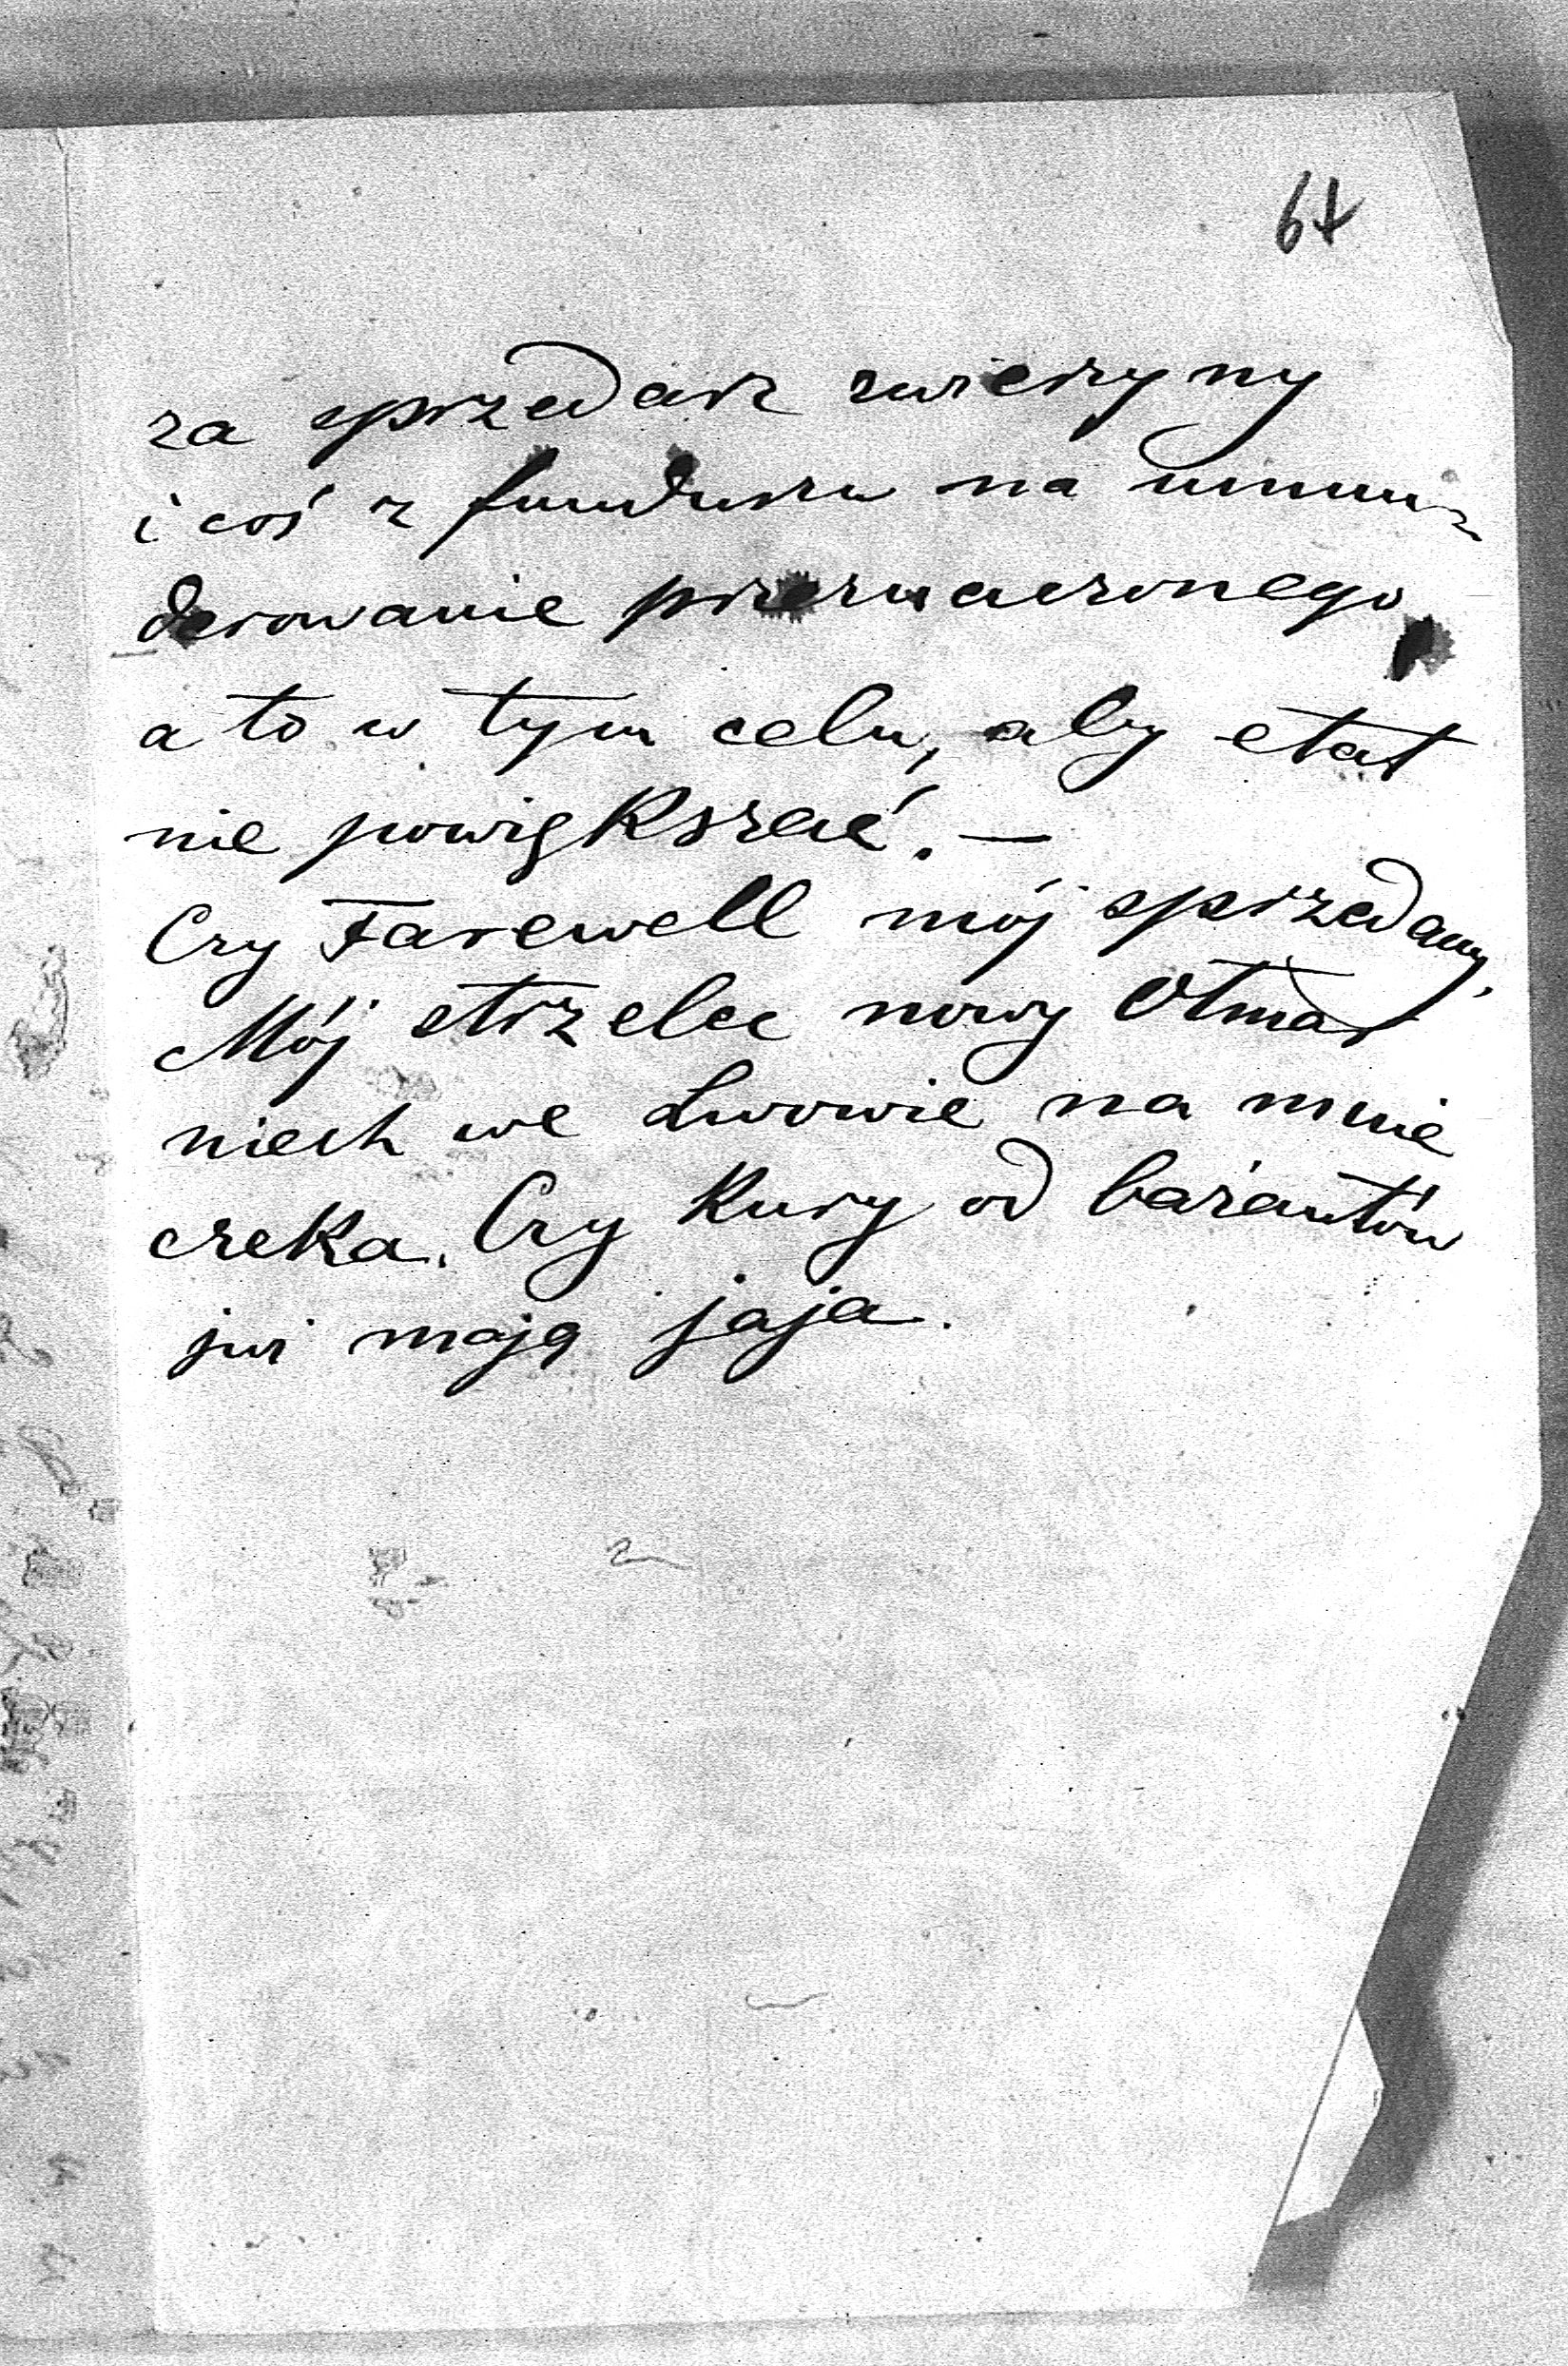 64
za sprzedarz zwierzyny
i coś z funduszu na umun-
derowanie przeznaczonego,
a to w tym celu, aby etat
nie powiększać. —
Czy Farewell mój sprzedany,
Mój strzelec nowy Otmar
niech we Lwowie na mnie
czeka. Czy Kury od bażantów
już mają jaja.